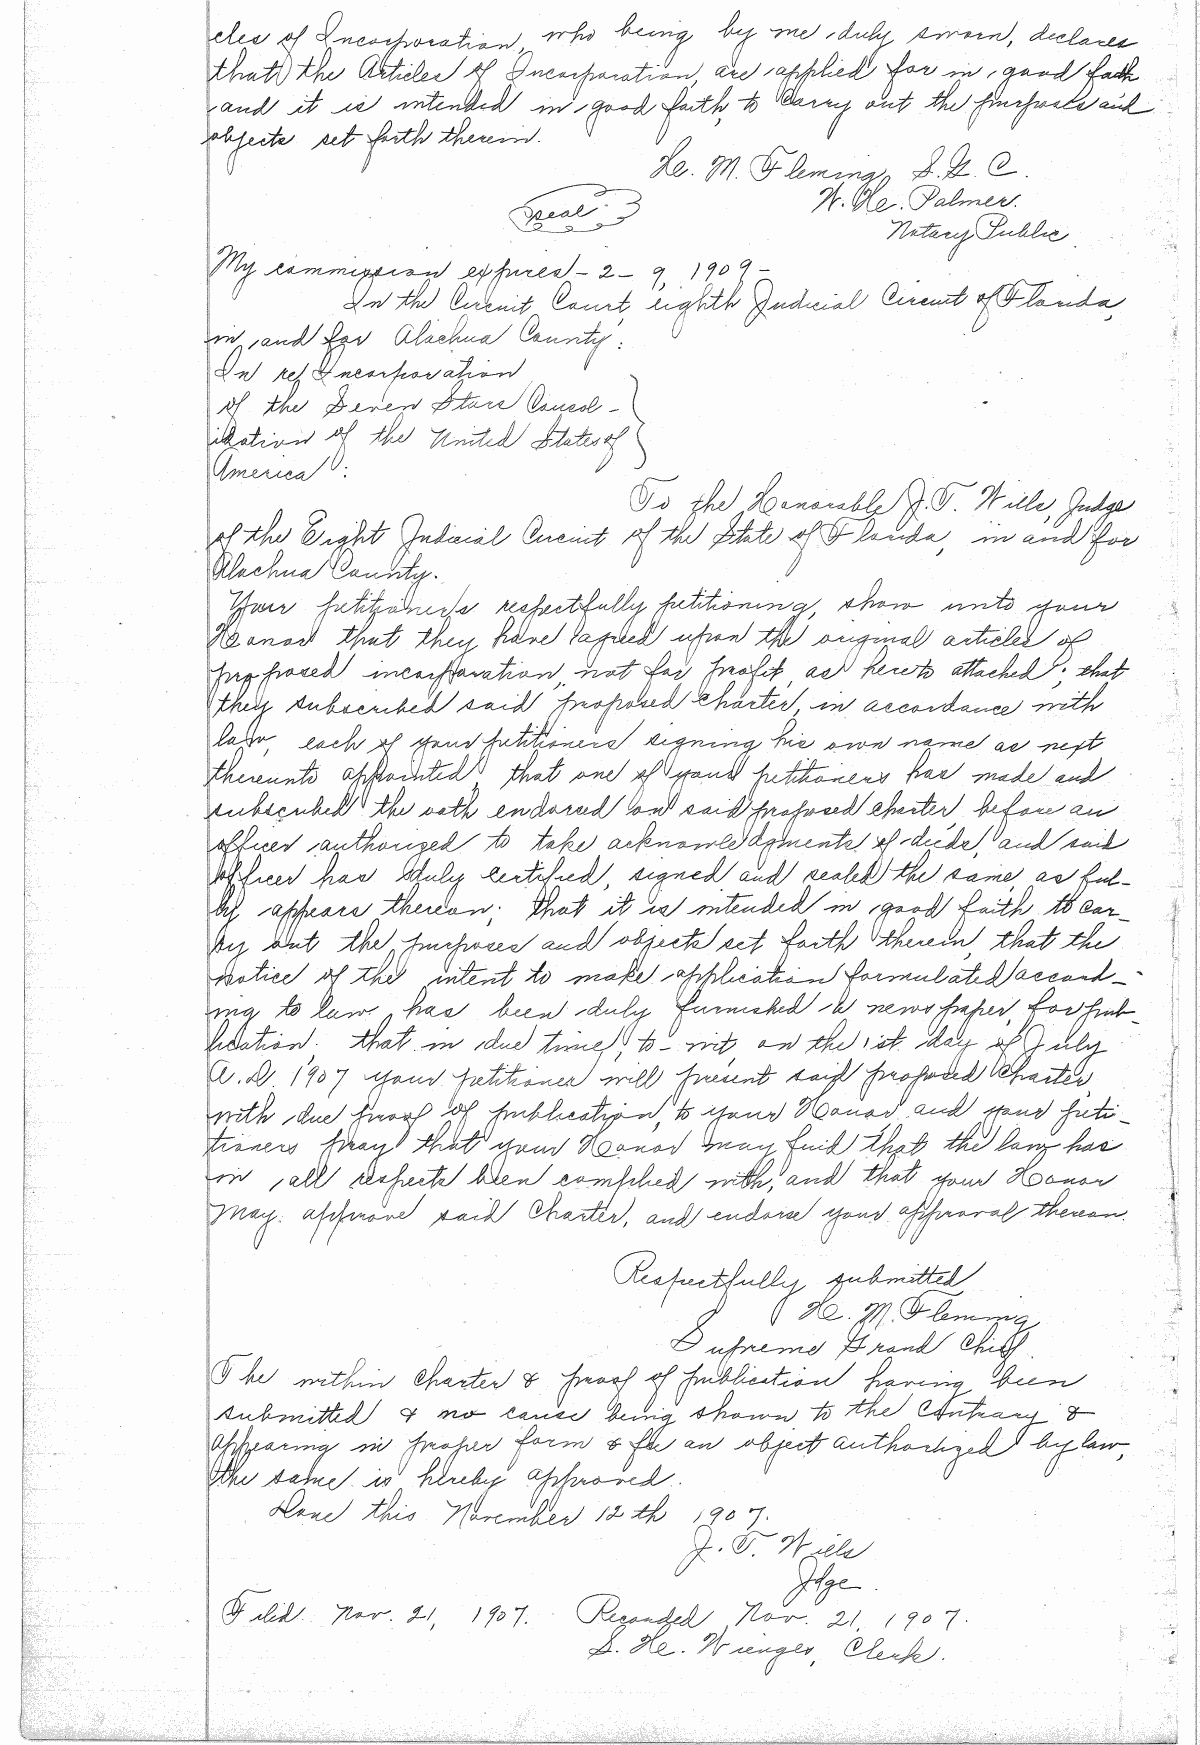 cles of Incorporation, who being by me duly sworn, declares
that the Articles of Incorporation, are applied for in good faith
and it is intended in good faith, to carry out the purposes and
objects set forth therein.
H. M. Fleming, S. G. C.
W. H. Palmer.
Seal
Notary Public
My commission expires - 2 - 9, 1909 -
In the Circuit Court, eighth Judicial Circuit of Florida,
in, and for Alachua County:
In re, Incorporation
of the Seven Stars Consol-
idation of the United States of
America:
To the Honorable J. T. Wills, Judge
of the Eight Judicial Circuit of the State of Florida, in and for
Alachua County.
Your petitioners respectfully petitioning, show unto your
Honor that they have agreed upon the original articles of
proposed incorporation, not for profit, as hereto attached; that
they subscribed said proposed charter, in accordance with
law, each of your petitioners signing his own name as next
thereunto appointed, that one of your petitioners has made and
subscribed the oath endorsed on said proposed charter, before an
officer authorized to take acknowledgments of deeds, and said
officer has duly certified, signed and sealed the same, as ful-
ly appears thereon; that it is intended in good faith, to car-
ry out the purposes and objects set forth therein, that the
notice of the intent to make application formulated accord-
ing to law, has been duly furnished a newspaper, for pub-
lication; that in due time, to-wit, on the 1st. day of July
A. D. 1907 your petitioner will present said proposed Charter,
with due proof of publication, to your Honor, and your peti-
tioners pray that your Honor may find that the law has
in all respects been complied with, and that your Honor
May approve said Charter, and endorse your approval thereon.
Respectfully submitted
H. M. Fleming
Supreme Grand Chief.
The within Charter & proof of publication having been
submitted & no cause being shown to the Contrary &
appearing in proper form & for an object authorized by law,
the same is hereby approved.
Done this November 12th 1907.
J. T. Wills
Jdge.
Filed Nov. 21, 1907. Recorded, Nov. 21, 1907.
S. H. Wienges, Clerk.